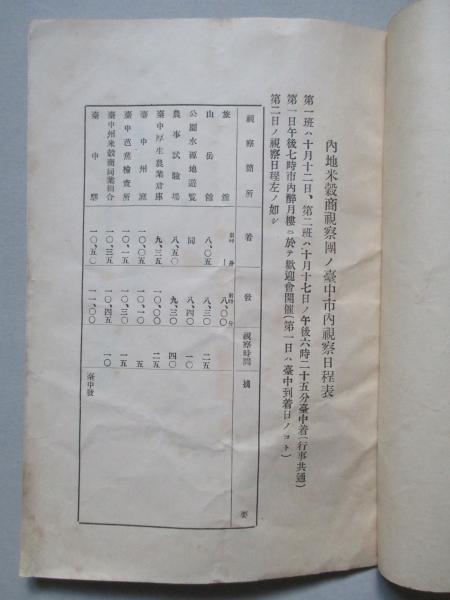 內地米穀商視察團ノ臺中市內視察日程表
第一班ハ十月十二日、第二班ハ十月十七日ノ午後六時二十五分臺中着(行事共通)
第一日午後七時市內醉月樓ニ於テ歡迎會開催(第一日ハ臺中到着日ノコト)
第二日ノ視察日程左ノ如シ
視察箇所 着 發 視察時間 摘要
旅館 前時 分 — 前時 分 八、〇〇
山岳館 八、〇五 八、三〇 二五
公園水源地遊覽 同 八、四〇 一〇
農事試驗場 八、五〇 九、三〇 四〇
臺中厚生農業倉庫 九、三五 一〇、〇〇 二五
臺中州廳 一〇、〇五 一〇、一〇 五
臺中芭蕉檢查所 一〇、一五 一〇、三〇 一五
臺中州米穀商同業組合 一〇、三五 一〇、四五 一〇
臺中驛 一〇、五〇 一一、〇〇 臺中發